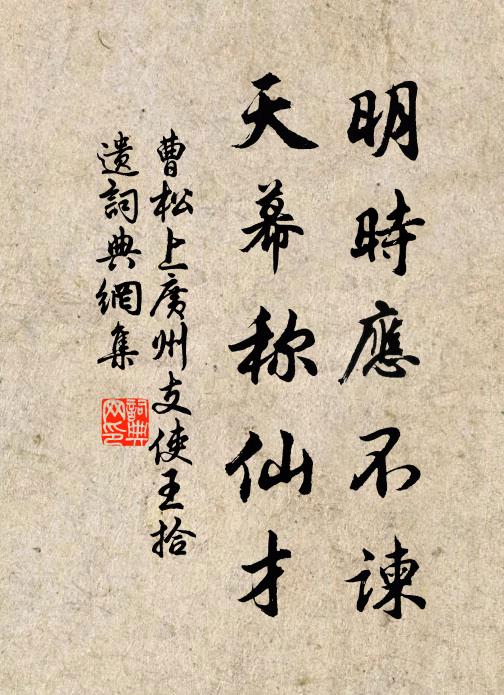 明時應不諫
天幕称仙才
曹松上廣州支使王拾
遺詞典網集
詞典
网印